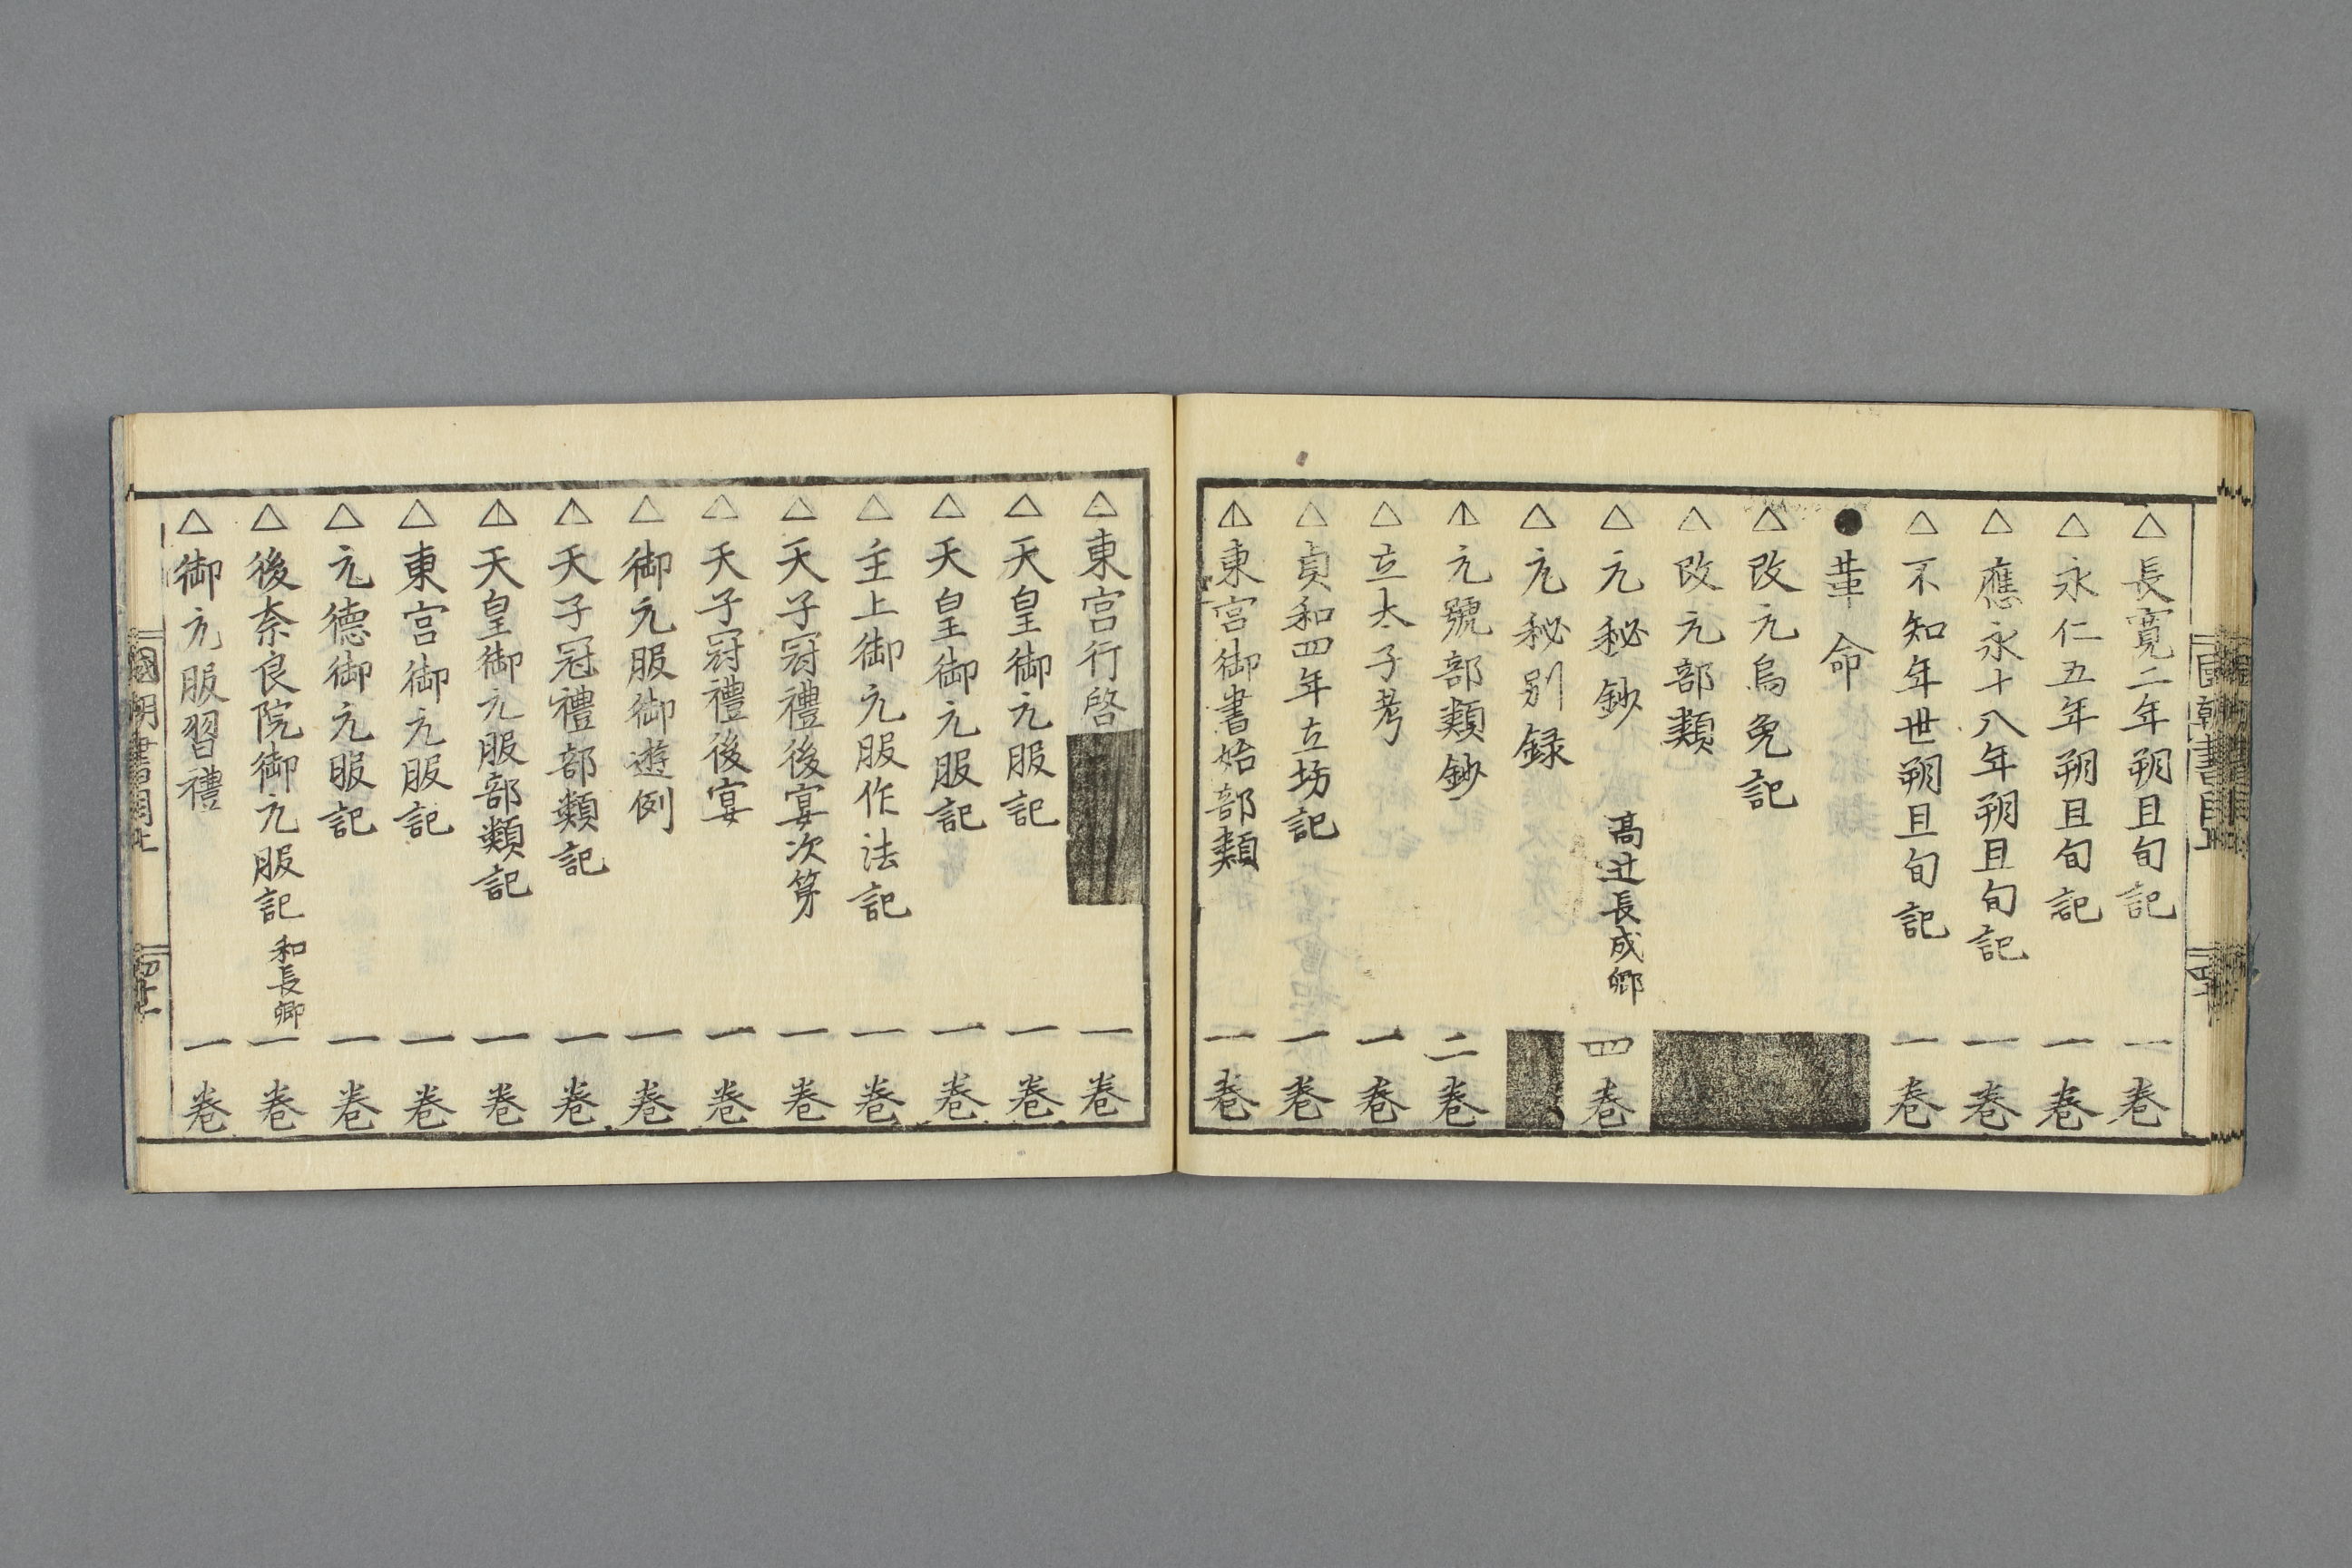 △長寛二年朔旦旬記 一卷
△永仁五年朔旦旬記 一卷
△應永十八年朔旦旬記 一卷
△不知年世朔旦旬記 一卷
●革命
△改元烏兔記
△改元部類
△元秘鈔 高辻長成卿 四卷
△元秘别録
△元號部類鈔 二卷
△立太子考 一卷
△貞和四年立坊記 一卷
△東宮御書始部類 一卷
△東宮行啓 一卷
△天皇御元服記 一卷
△天皇御元服記 一卷
△主上御元服作法記 一卷
△天子冠禮後宴次第 一卷
△天子冠禮後宴 一卷
△御元服御遊例 一卷
△天子冠禮部類記 一卷
△天皇御元服部類記 一卷
△東宮御元服記 一卷
△元德御元服記 一卷
△後奈良院御元服記 和長卿 一卷
△御元服習禮 一卷